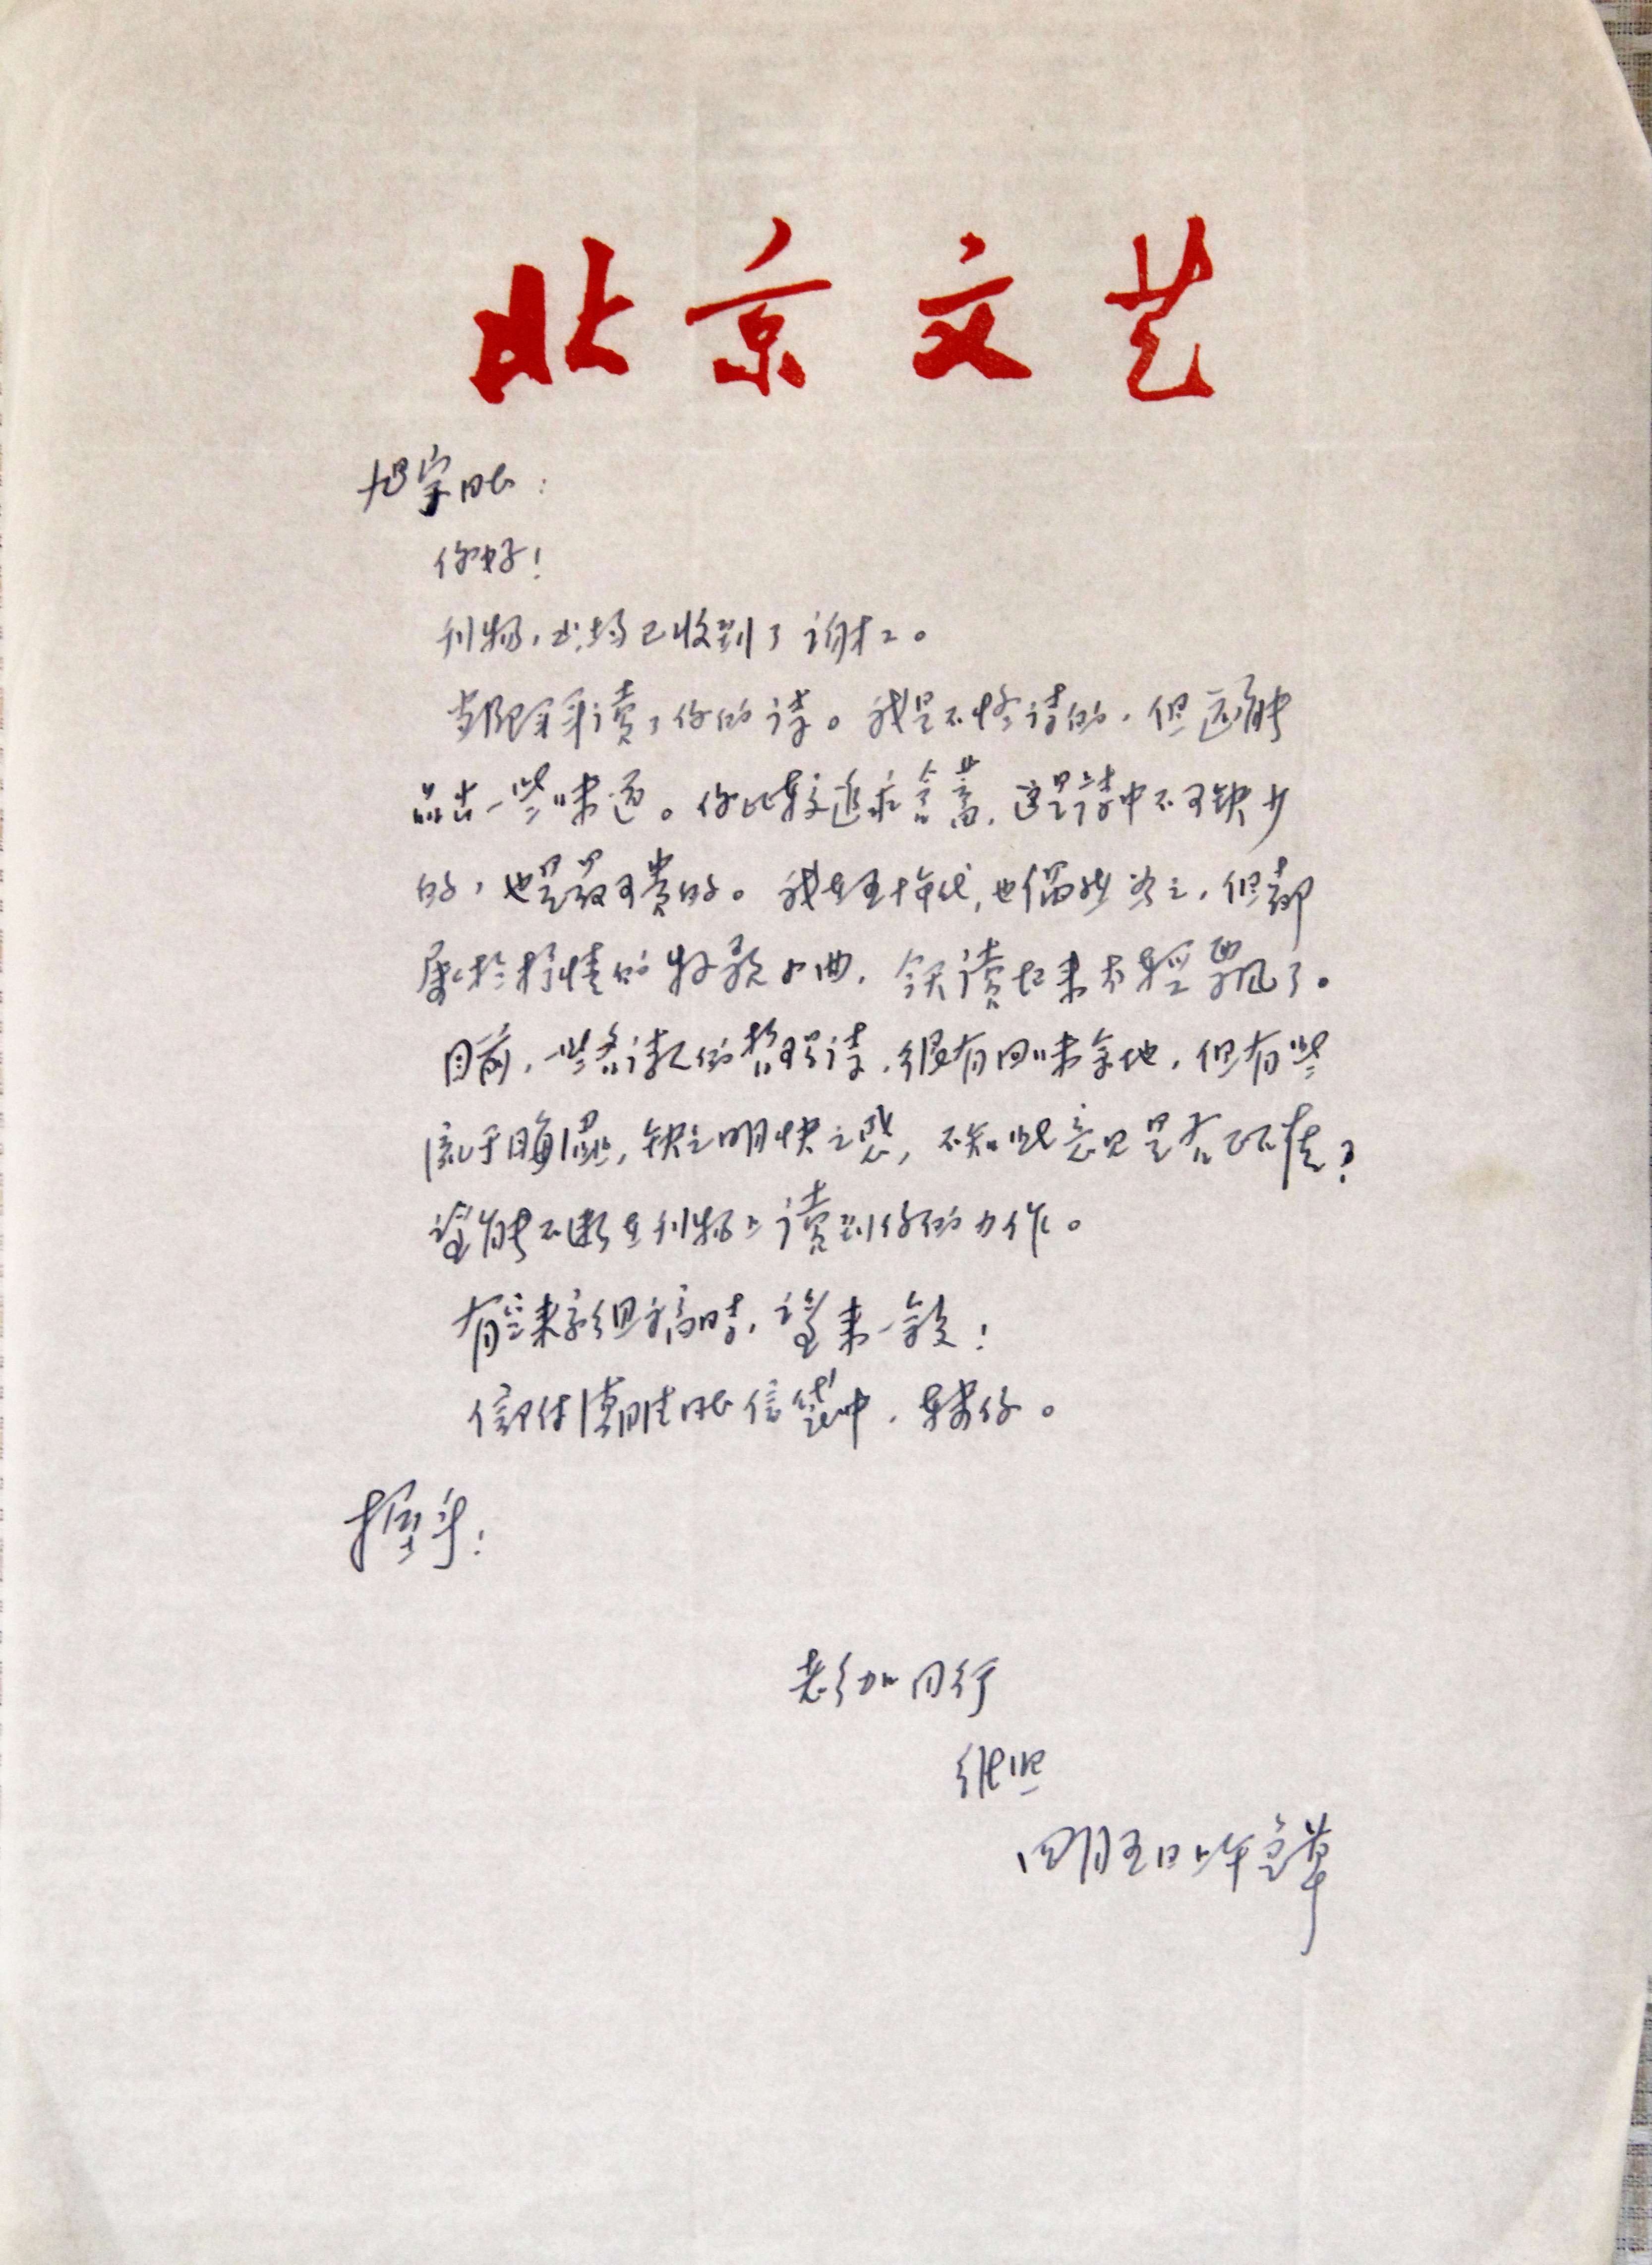 北京文艺
旭宇同志：
你好！
刊物、书均已收到了谢谢。
当即拜读了你的诗。我是不懂诗的，但还能
品出一些味道。你比较追求含蓄，这是诗中不可缺少
的，也是最可贵的。我在五十年代，也偶然为之，但都
属于抒情的牧歌小曲，今天读起来
目前，一些的诗，很有回味余地，但有些
流于晦涩，缺乏明快之感，不知此意见是否正确？
望能不断在刊物上读到你的力作。
有空来京组稿时，望来一叙！
信同志信中，转你。
握手！
老同行
继
四月五日草